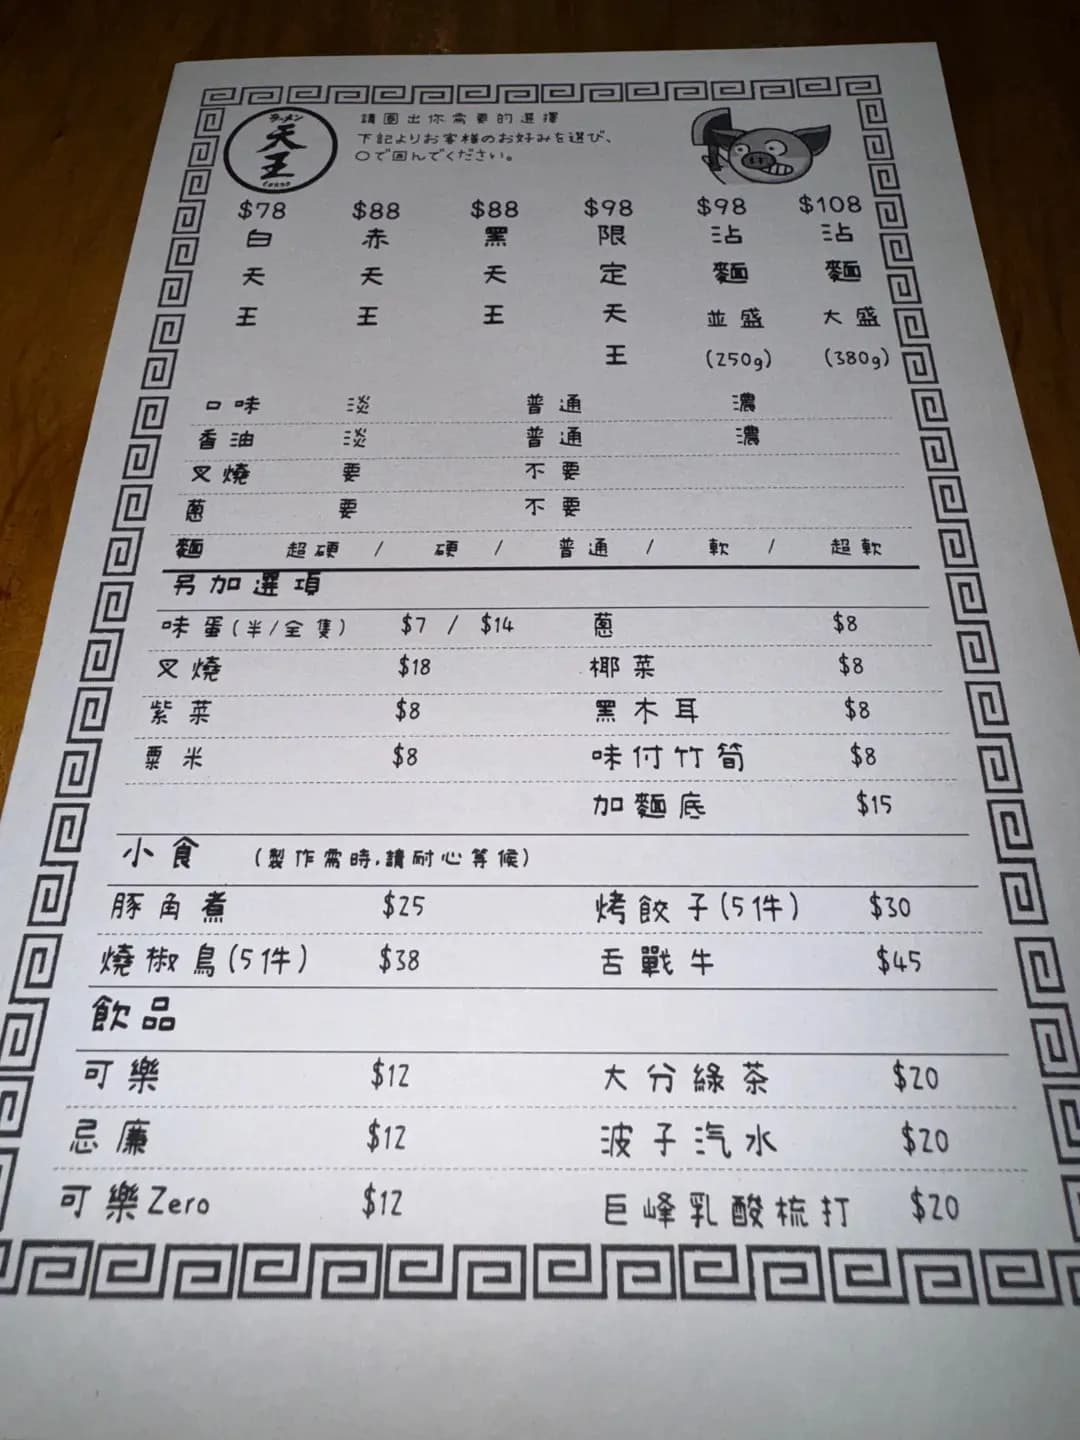 ラーメン
天王
請圈出你需要的選擇
下記よりお客様のお好みを選び、
○で囲んでください。
$78 $88 $88 $98 $98 $108
白天王 赤天王 黑天王 限定天王 沾麵 並盛 (250g) 沾麵 大盛 (380g)
口味 淡 普通 濃
香油 淡 普通 濃
叉燒 要 不要
蔥 要 不要
麵 超硬 / 硬 / 普通 / 軟 / 超軟
另加選項
味蛋(半/全隻) $7 / $14 蔥 $8
叉燒 $18 椰菜 $8
紫菜 $8 黑木耳 $8
粟米 $8 味付竹筍 $8
加麵底 $15
小食 (製作需時,請耐心等候)
豚角煮 $25 烤餃子(5件) $30
燒椒鳥(5件) $38 舌戰牛 $45
飲品
可樂 $12 大分綠茶 $20
忌廉 $12 波子汽水 $20
可樂Zero $12 巨峰乳酸梳打 $20